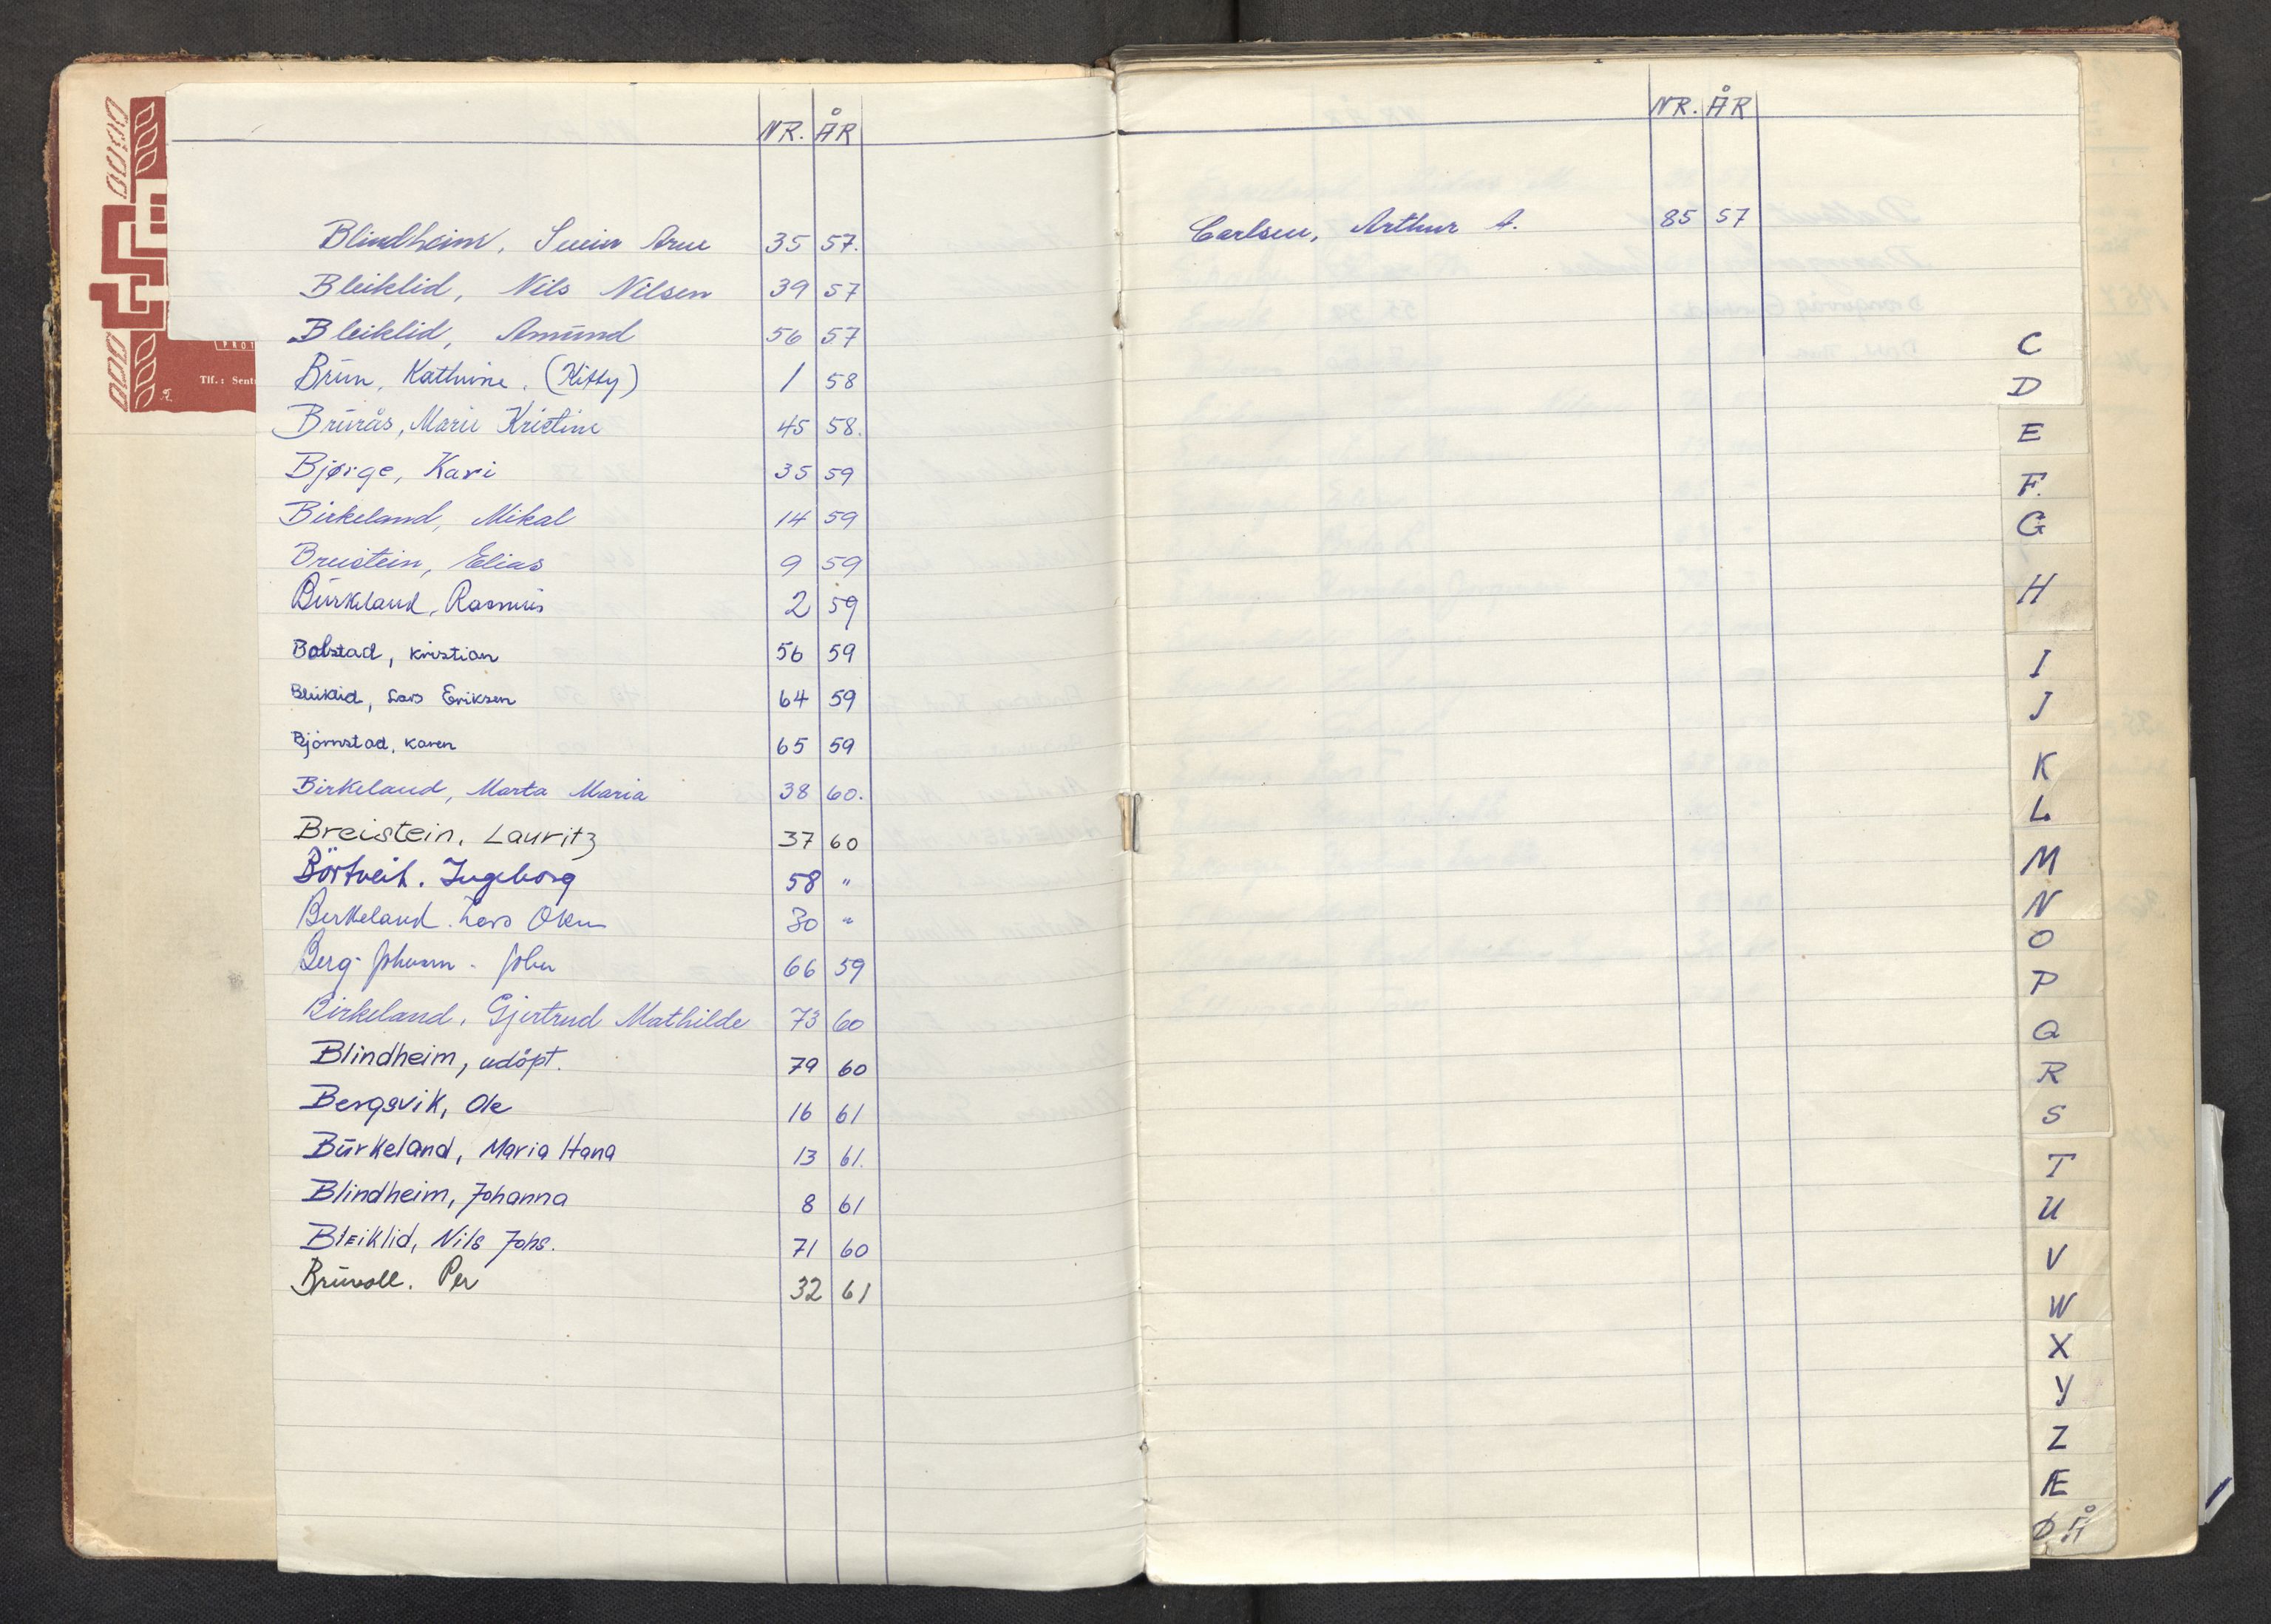 NR. ÅR
Blindheim, Svein Arne 35 57.
Bleiklid, Nils Nilsen 39 57
Bleiklid, Amund 56 57
Brun, Kathrine. (Kitty) 1 58
Brurås, Marie Kristine 45 58.
Bjørge, Kari 35 59
Birkeland, Mikal 14 59
Breistein, Elias 9 59
Burkeland, Rasmus 2 59
Bolstad, Kristian 56 59
Bleiklid, Lars Eriksen 64 59
Bjørnstad, Karen 65 59
Birkeland, Marta Maria 38 60.
Breistein, Lauritz 37 60
Börtveit. Ingeborg 58 "
Berkeland. Lars 30 "
Berg- - John 66 59
Birkeland, Gjertrud Mathilde 73 60
Blindheim, adópt. 79 60
Bergsvik, Ole 16 61
Burkeland, Maria Hana 13 61.
Blindheim, Johanna 8 61
Bleiklid, Nils Johs. 71 60
Bruvoll. Per 32 61
Tlf.: Sent
NR. ÅR
Carlsen, Arthur A. 85 57
C
D
E
F.
G
H
I
J
K
L
M
N
O
P
Q
R
S
T
U
V
W
X
Y
Z
Æ
Ø Å